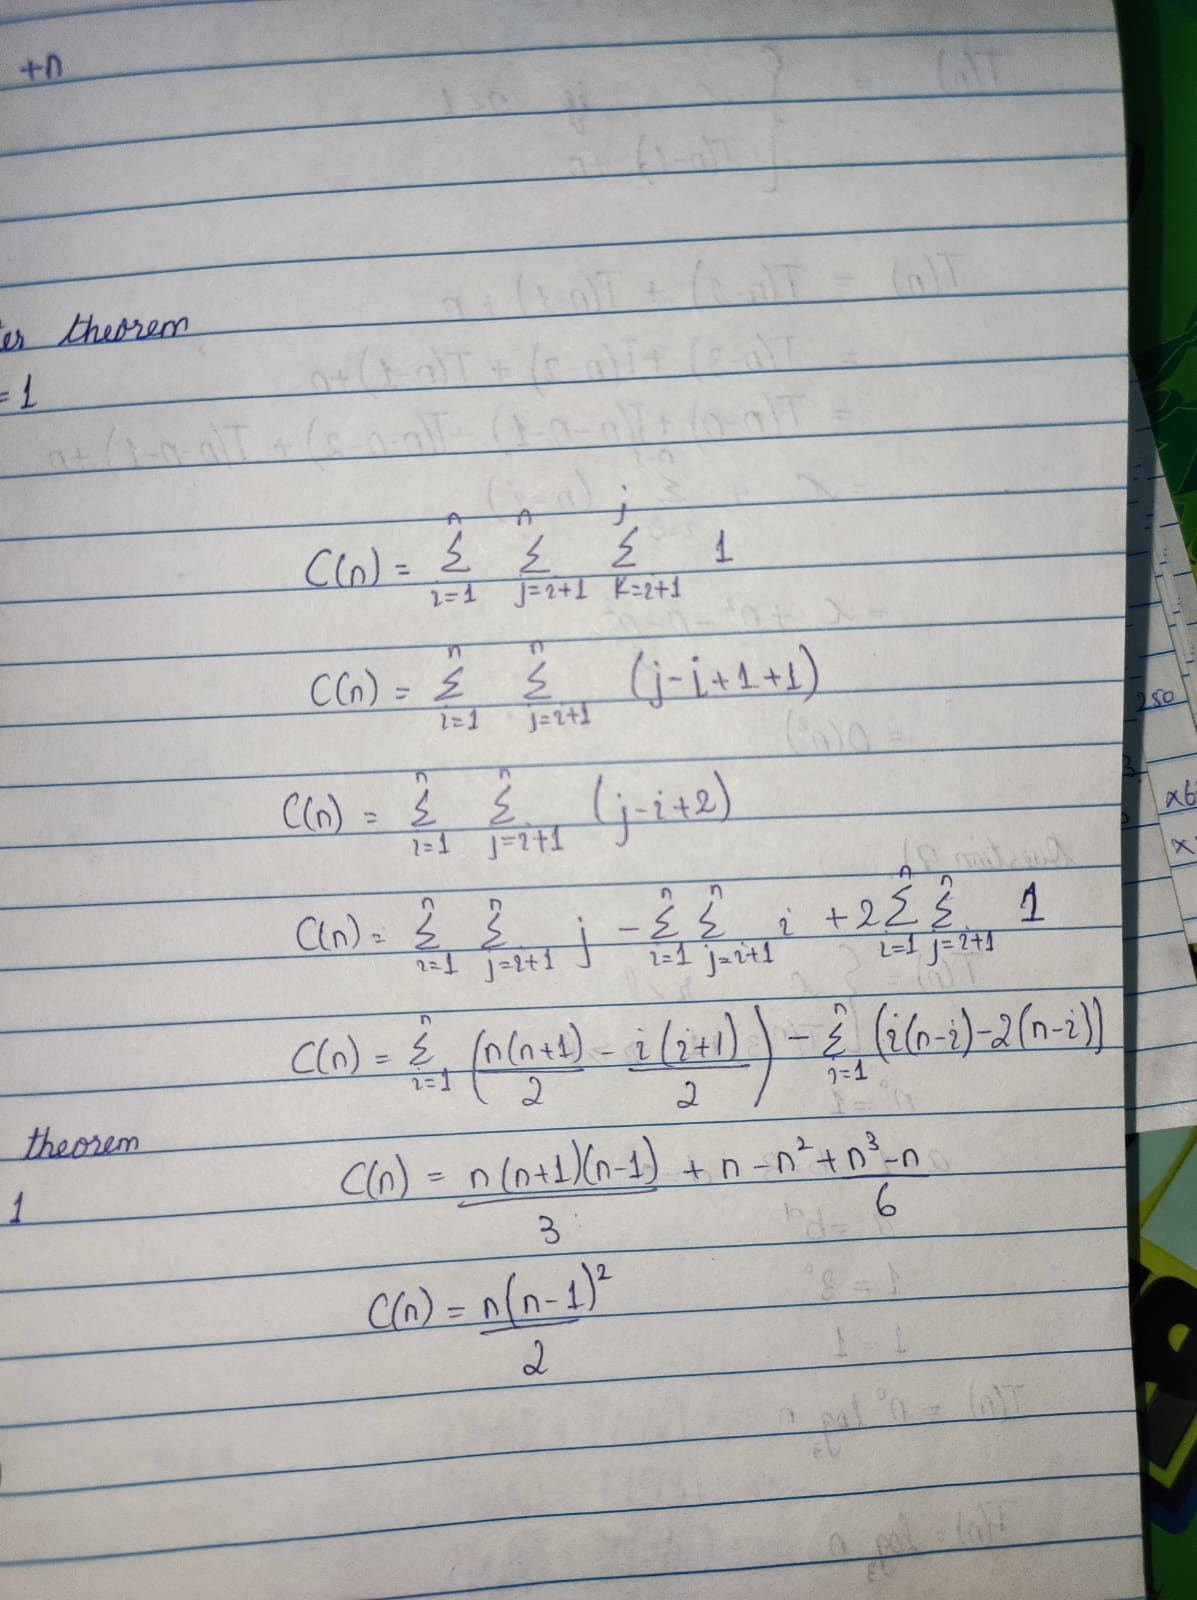 +n
ter theorem
= 1
C(n) = Σ_{i=1}^{n} Σ_{j=i+1}^{n} Σ_{K=i+1}^{j} 1
C(n) = Σ_{i=1}^{n} Σ_{j=i+1}^{n} (j-i+1+1)
250
C(n) = Σ_{i=1}^{n} Σ_{j=i+1}^{n} (j-i+2)
C(n) = Σ_{i=1}^{n} Σ_{j=i+1}^{n} j - Σ_{i=1}^{n} Σ_{j=i+1}^{n} i + 2 Σ_{i=1}^{n} Σ_{j=i+1}^{n} 1
C(n) = Σ_{i=1}^{n} (n(n+1)/2 - i(i+1)/2) - Σ_{i=1}^{n} (i(n-i)-2(n-i))
theorem
1
C(n) = n(n+1)(n-1)/3 + n - n² + n³-n/6
C(n) = n(n-1)²/2